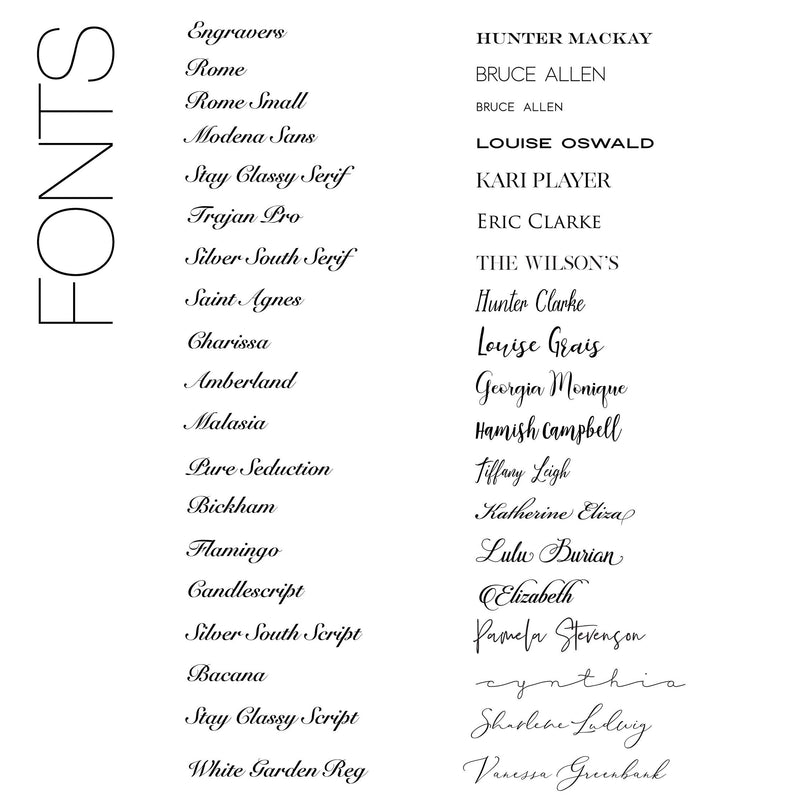 FONTS
Engravers HUNTER MACKAY
Rome BRUCE ALLEN
Rome Small BRUCE ALLEN
Modena Sans LOUISE OSWALD
Stay Classy Serif KARI PLAYER
Trajan Pro ERIC CLARKE
Silver South Serif THE WILSON'S
Saint Agnes Hunter Clarke
Charissa Louise Grais
Amberland Georgia Monique
Malasia Hamish Campbell
Pure Seduction Tiffany Leigh
Bickham Katherine Eliza
Flamingo Lulu Burian
Candlescript Elizabeth
Silver South Script Pamela Stevenson
Bacana cynthia
Stay Classy Script Sharlene Ludwig
White Garden Reg Vanessa Greenbank